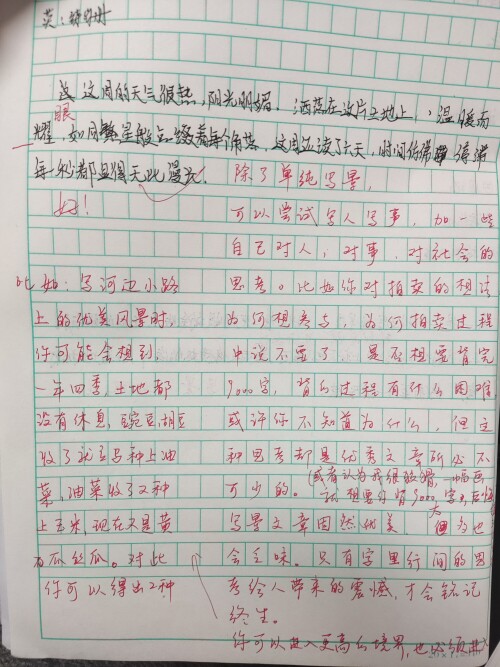 这周的天气很热，阳光明媚，洒落在这片土地上，温暖而
眼
耀，如同繁星般点缀着
这周要读了六天，时间仿佛停滞
每一秒都显得无比漫长。
好！
除了单纯写景，
可以尝试写人写事，加一些
自己对人，对事，对社会的
思考。比如你对拍卖的想法
为何想参与，为何拍卖过程
中说不要了，是不想要背完
9000字，背的过程有什么困难
或许你不知道为什么，但这
种思考却是优秀文章所必不
可少的。
(或者认为我很狡猾，一幅画
就想要分背9000字，后悔
写景文章固然优美，但多也
会乏味。只有字里行间的思
考给人带来的震憾，才会铭记
终生。
你可以进入更高的境界，也必须进入
比如：写河边小路
上的优美风景时，
你可能会想到
一年四季，土地都
没有休息，豌豆，胡豆
收了就立马种上油
菜，油菜收了又种
上玉米，现在又是黄
瓜丝瓜。对此
你可以得出2种